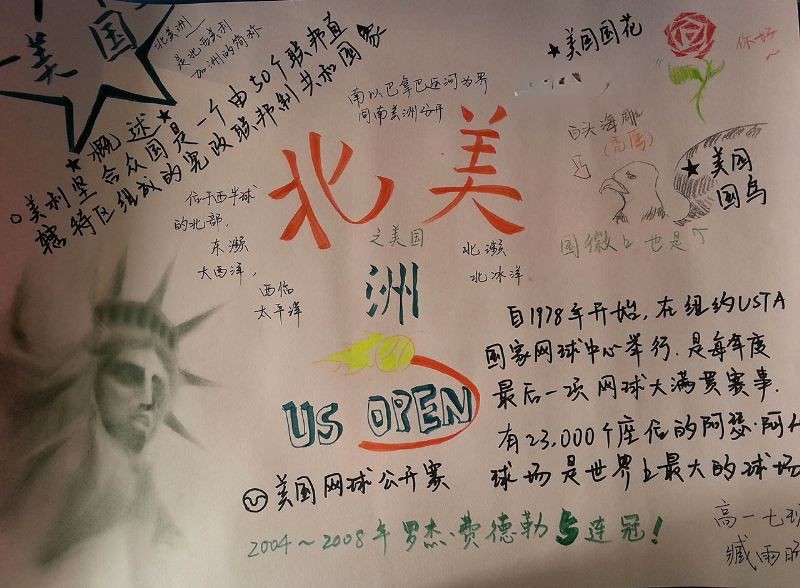 美国
北美洲
是北亚美利
加洲的简称
★概述★
。美利坚合众国是一个由50个联邦直
辖特区组成的宪政联邦制共和国家
南以巴拿巴运河为界
同南美洲分开
★美国国花
你好
~
白头海雕
(秃鹰)
★美国
国鸟
国徽上也是
北美
之美国
洲
位于西半球
的北部,
东濒
大西洋,
西临
太平洋
北濒
北冰洋
US OPEN
美国网球公开赛
自1978年开始,在纽约USTA
国家网球中心举行.是每年度
最后一项网球大满贯赛事.
有23,000个座位的阿瑟·阿什
球场是世界上最大的球场
2004~2008年罗杰·费德勒5连冠!
高一七班
臧雨